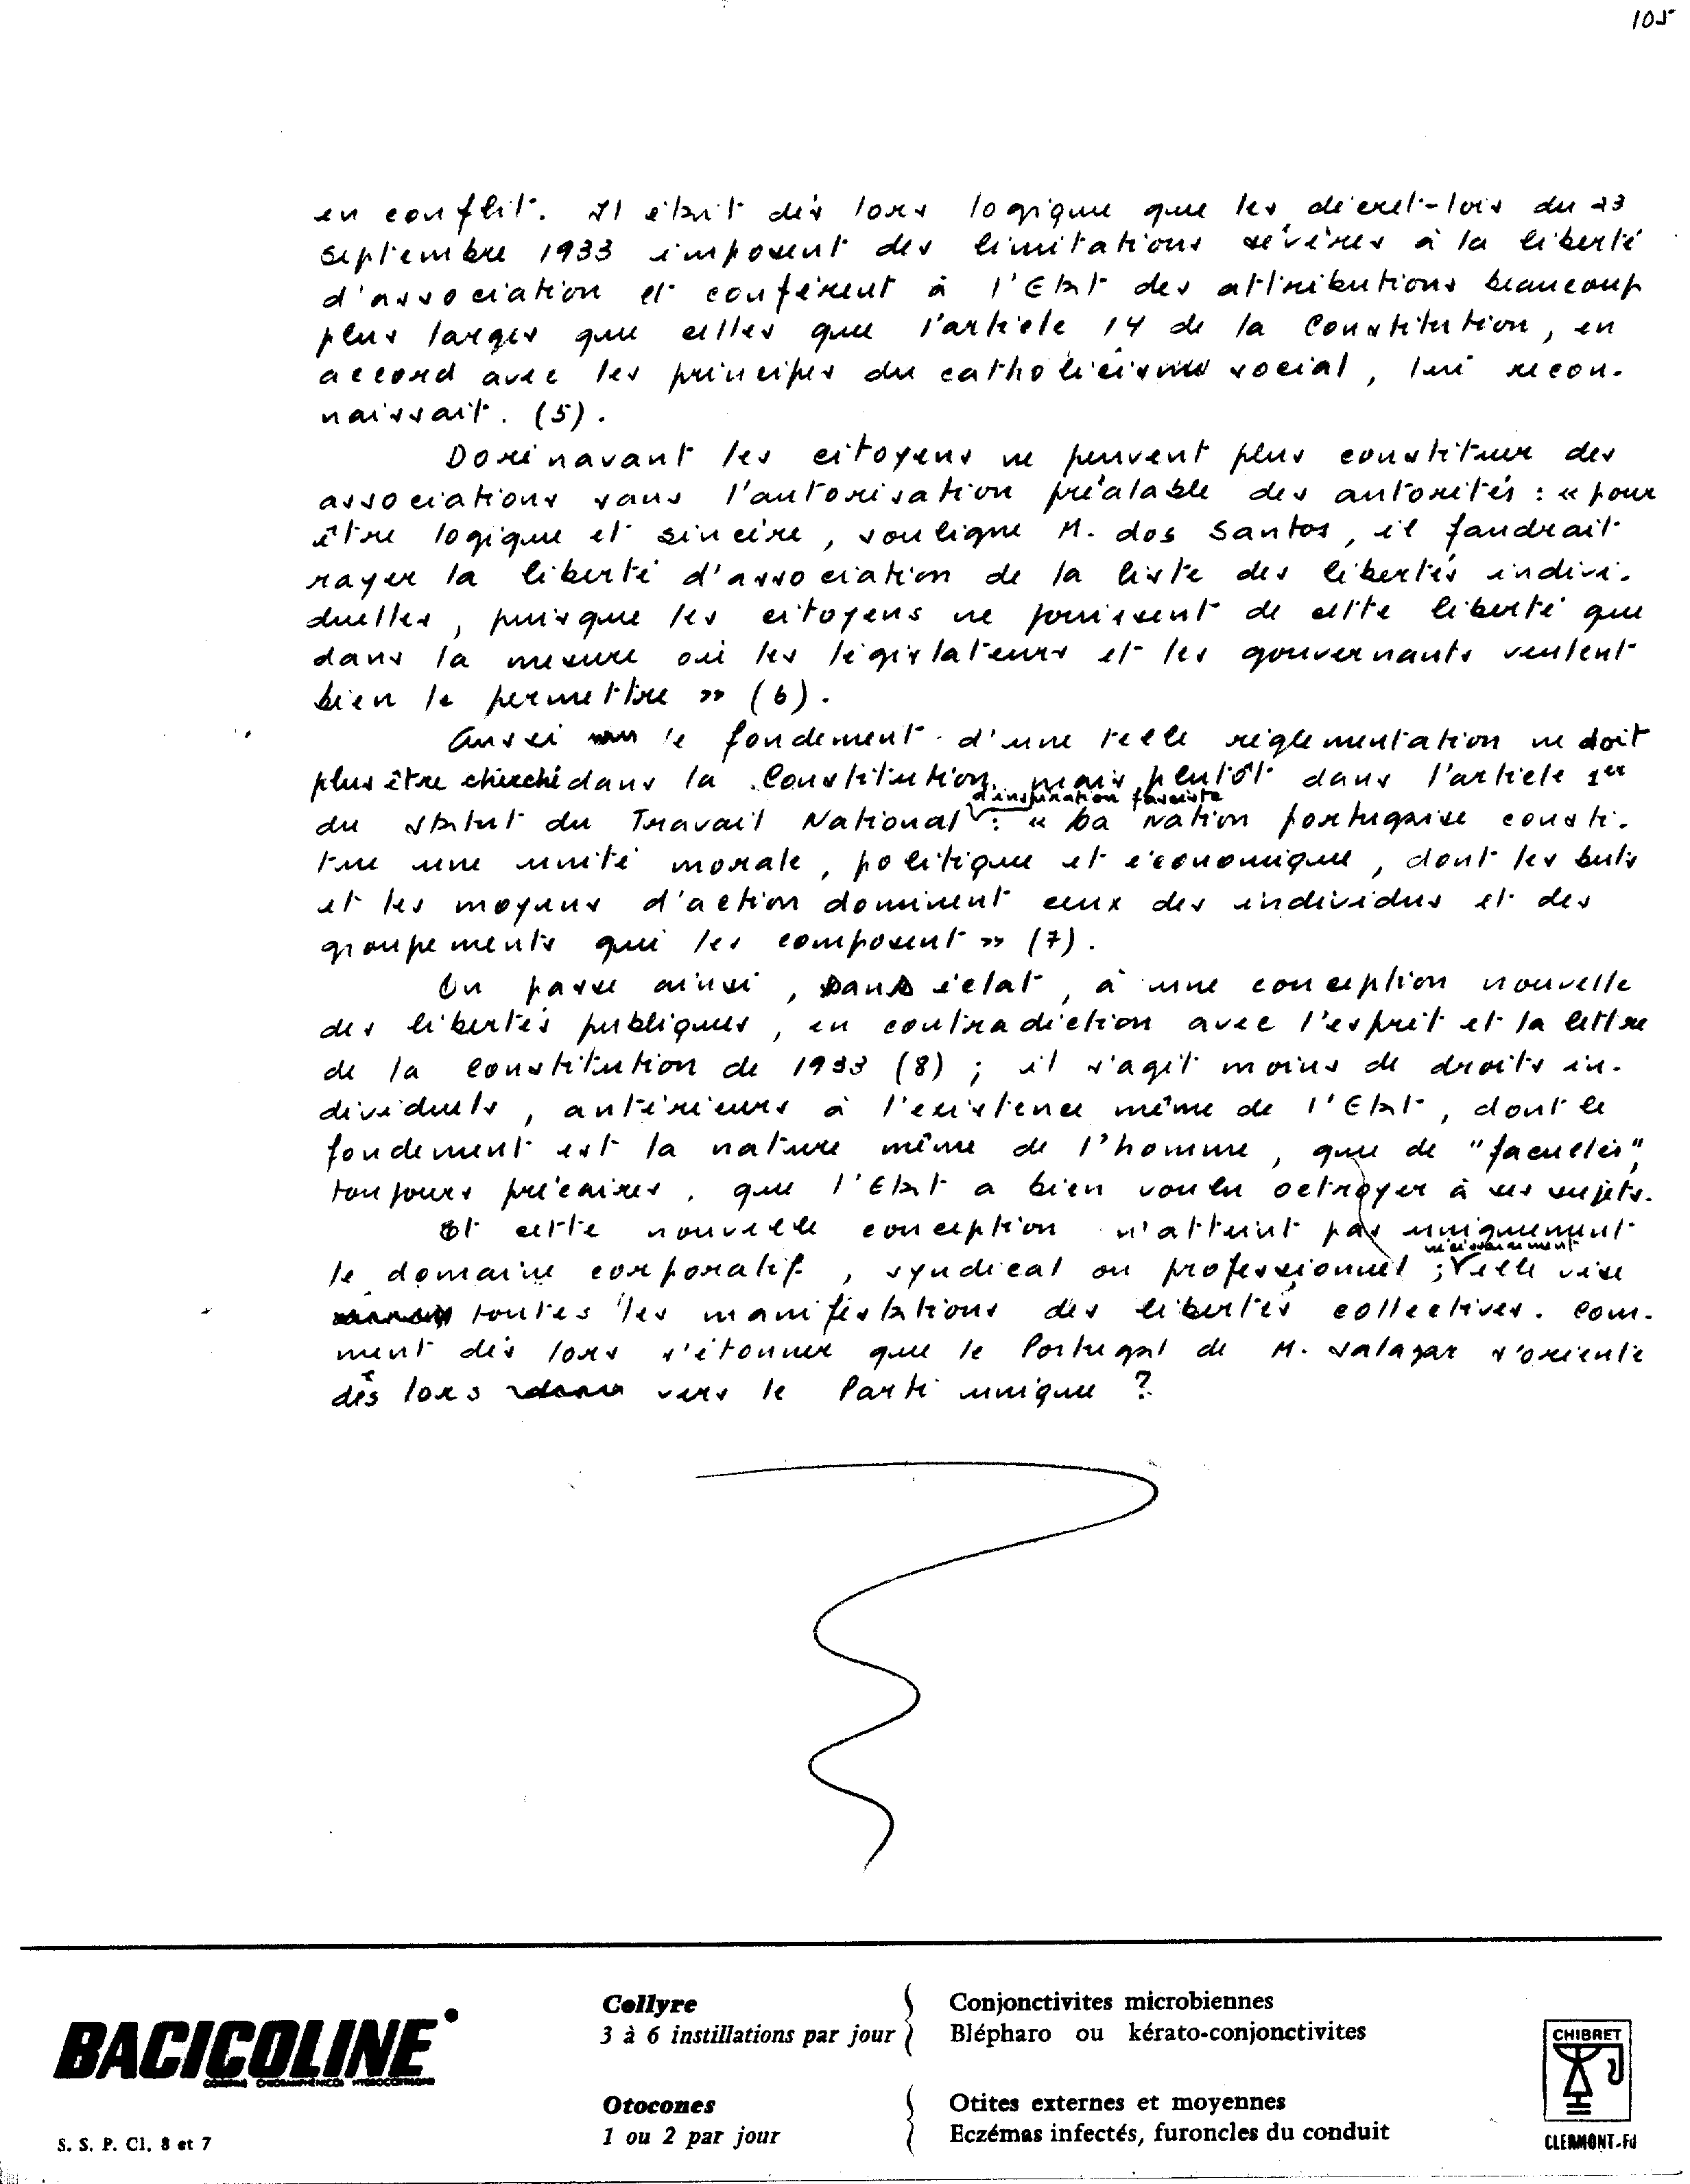 105
en conflit. Il était dès lors logique que les décret-lois du 23
septembre 1933 imposent des limitations sévères à la liberté
d'association et confèrent à l'Etat des attributions beaucoup
plus larges que celles que l'article 14 de la Constitution, en
accord avec les principes du catholicisme social, lui recon-
naissait. (5).
Dorénavant les citoyens ne peuvent plus constituer des
associations sans l'autorisation préalable des autorités : « pour
être logique et sincère, souligne M. dos Santos, il faudrait
rayer la liberté d'association de la liste des libertés indivi-
duelles, puisque les citoyens ne jouissent de cette liberté que
dans la mesure où les législateurs et les gouvernants veulent
bien le permettre » (6).
Aussi le fondement d'une telle réglementation ne doit
plus être cherché dans la Constitution, mais plutôt dans l'article 1er
d'inspiration fasciste
du statut du Travail National : « La Nation portugaise consti-
tue une unité morale, politique et économique, dont les buts
et les moyens d'action dominent ceux des individus et des
groupements qui les composent » (7).
On passe ainsi, sans éclat, à une conception nouvelle
des libertés publiques, en contradiction avec l'esprit et la lettre
de la constitution de 1933 (8) ; il s'agit moins de droits in-
dividuels, antérieurs à l'existence même de l'Etat, dont le
fondement est la nature même de l'homme, que de "facultés",
toujours précaires, que l'Etat a bien voulu octroyer à ses sujets.
Et cette nouvelle conception n'atteint pas uniquement
nécessairement
le domaine corporatif, syndical ou professionnel ; elle vise
toutes les manifestations des libertés collectives. Com-
ment dès lors s'étonner que le Portugal de M. Salazar s'oriente
dès lors vers le Parti unique ?
BACICOLINE
S. S. P. Cl. 8 et 7
Collyre
3 à 6 instillations par jour
Conjonctivites microbiennes
Blépharo ou kérato-conjonctivites
Otocones
1 ou 2 par jour
Otites externes et moyennes
Eczémas infectés, furoncles du conduit
CHIBRET
CLERMONT-Fd